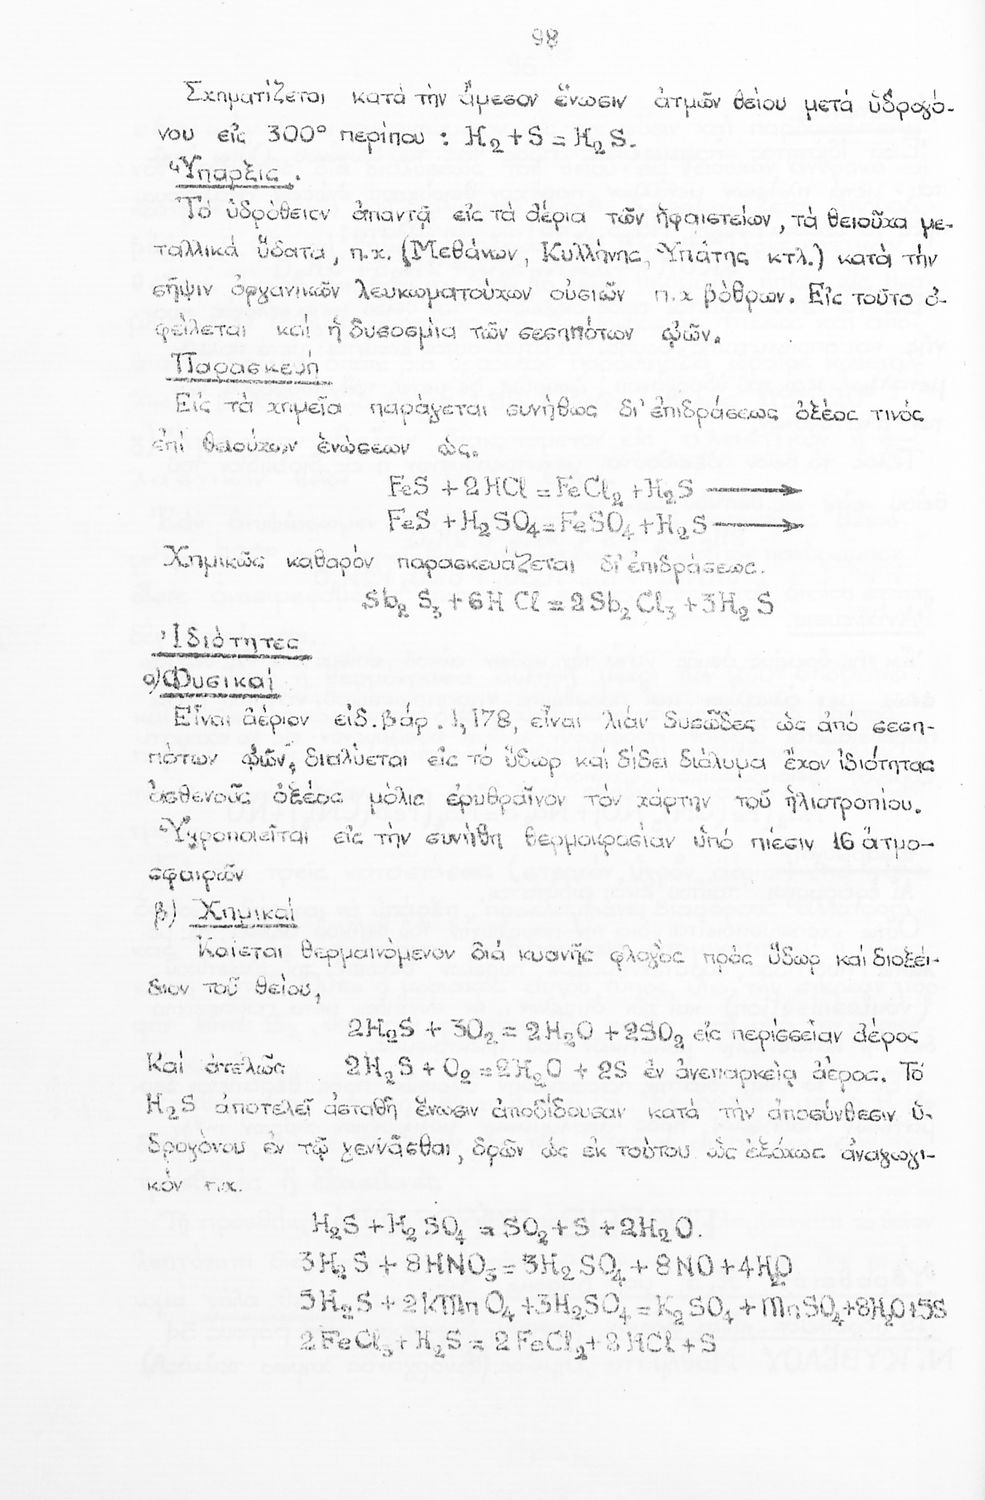 98
Σχηματίζεται κατά τήν ἄμεσον ἕνωσιν ἀτμῶν θείου μετά ὑδρογό-
νου εἰς 300° περίπου : H₂ + S = H₂S.
Ὕπαρξις.
Τό ὑδρόθειον ἀπαντᾷ εἰς τά ἀέρια τῶν ἡφαιστείων, τά θειοῦχα με-
ταλλικά ὕδατα, π.χ. (Μεθάνων, Κυλλήνης, Ὑπάτης κτλ.) κατά τήν
σῆψιν ὀργανικῶν λευκωματούχων οὐσιῶν π.χ βόθρων. Εἰς τοῦτο ὀ-
φείλεται καί ἡ δυσοσμία τῶν σεσηπότων ᾠῶν.
Παρασκευή
Εἰς τά χημεῖα παράγεται συνήθως δι' ἐπιδράσεως ὀξέος τινός
ἐπί θειούχων ἑνώσεων ὡς.
FeS + 2HCl = FeCl₂ + H₂S ⟶
FeS + H₂SO₄ = FeSO₄ + H₂S ⟶
Χημικῶς καθαρόν παρασκευάζεται δι' ἐπιδράσεως.
Sb₂ S₃ + 6H Cl = 2Sb₂ Cl₃ + 3H₂ S
Ἰδιότητες
α) Φυσικαί
Εἶναι ἀέριον εἰδ. βάρ. 1,178, εἶναι λίαν δυσῶδες ὡς ἀπό σεση-
πότων ᾠῶν, διαλύεται εἰς τό ὕδωρ καί δίδει διάλυμα ἔχον ἰδιότητας
ἀσθενοῦς ὀξέος μόλις ἐρυθραῖνον τόν χάρτην τοῦ ἡλιοτροπίου.
Ὑγροποιεῖται εἰς τήν συνήθη θερμοκρασίαν ὑπό πίεσιν 16 ἀτμο-
σφαιρῶν
β) Χημικαί
Καίεται θερμαινόμενον διά κυανῆς φλογός πρός ὕδωρ καί διοξεί-
διον τοῦ θείου,
2H₂S + 3O₂ = 2H₂O + 2SO₂ εἰς περίσσειαν ἀέρος
Καί ἀτελῶς 2H₂S + O₂ = 2H₂O + 2S ἐν ἀνεπαρκείᾳ ἀέρος. Τό
H₂S ἀποτελεῖ ἀσταθῆ ἕνωσιν ἀποδίδουσαν κατά τήν ἀποσύνθεσιν ὑ-
δρογόνου ἐν τῷ γεννᾶσθαι, δρῶν ὡς ἐκ τούτου ὡς ἐξόχως ἀναγωγι-
κόν π.χ.
H₂S + H₂ SO₄ = SO₂ + S + 2H₂O.
3H₂ S + 8HNO₃ = 3H₂ SO₄ + 8NO + 4H₂O
5H₂S + 2KMnO₄ + 3H₂SO₄ = K₂ SO₄ + MnSO₄ + 8H₂O + 5S
2FeCl₃ + H₂S = 2FeCl₂ + 2HCl + S